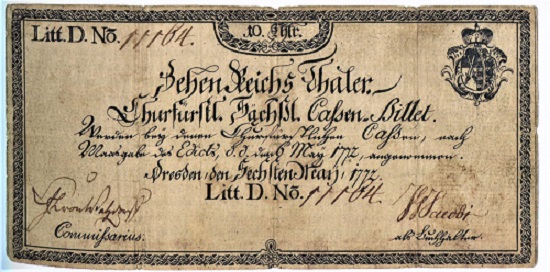 10. Thlr.
Litt. D. No. 11164.
Zehen Reichs Thaler.
Churfürstl. Sächßl. Cassen-Billet.
Werden bey denen Churfürstlichen Cassen, nach
Maasgabe des Edicts, d. d. May 1772, angenommen.
Dresden, den Sechsten May, 1772.
Litt. D. No. 11164
Commissarius.
als Buchhalter.